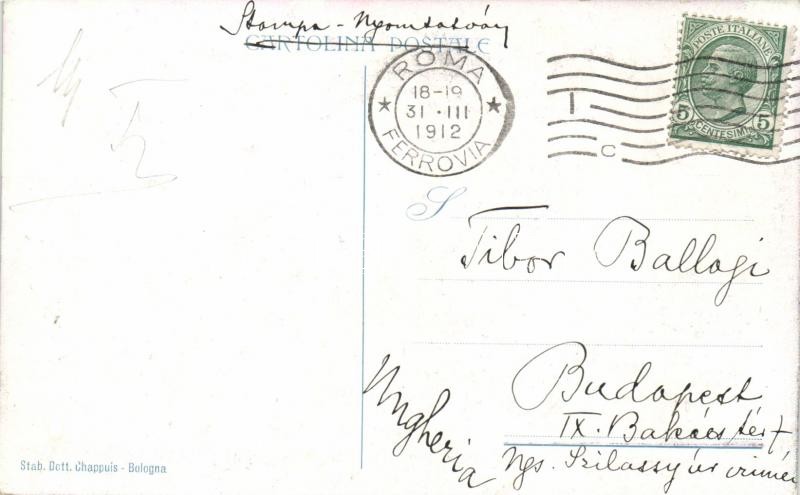 Stampa - Nyomtatvány
CARTOLINA POSTALE
ROMA
18-19
31 · III
1912
FERROVIA
I
C
POSTE ITALIANE
5 5
CENTESIMI
S
Tibor Ballagi
Budapest
IX. Bakács tér
Ngs. Szilassy úr címén
Ungheria
Stab. Dott. Chappuis - Bologna